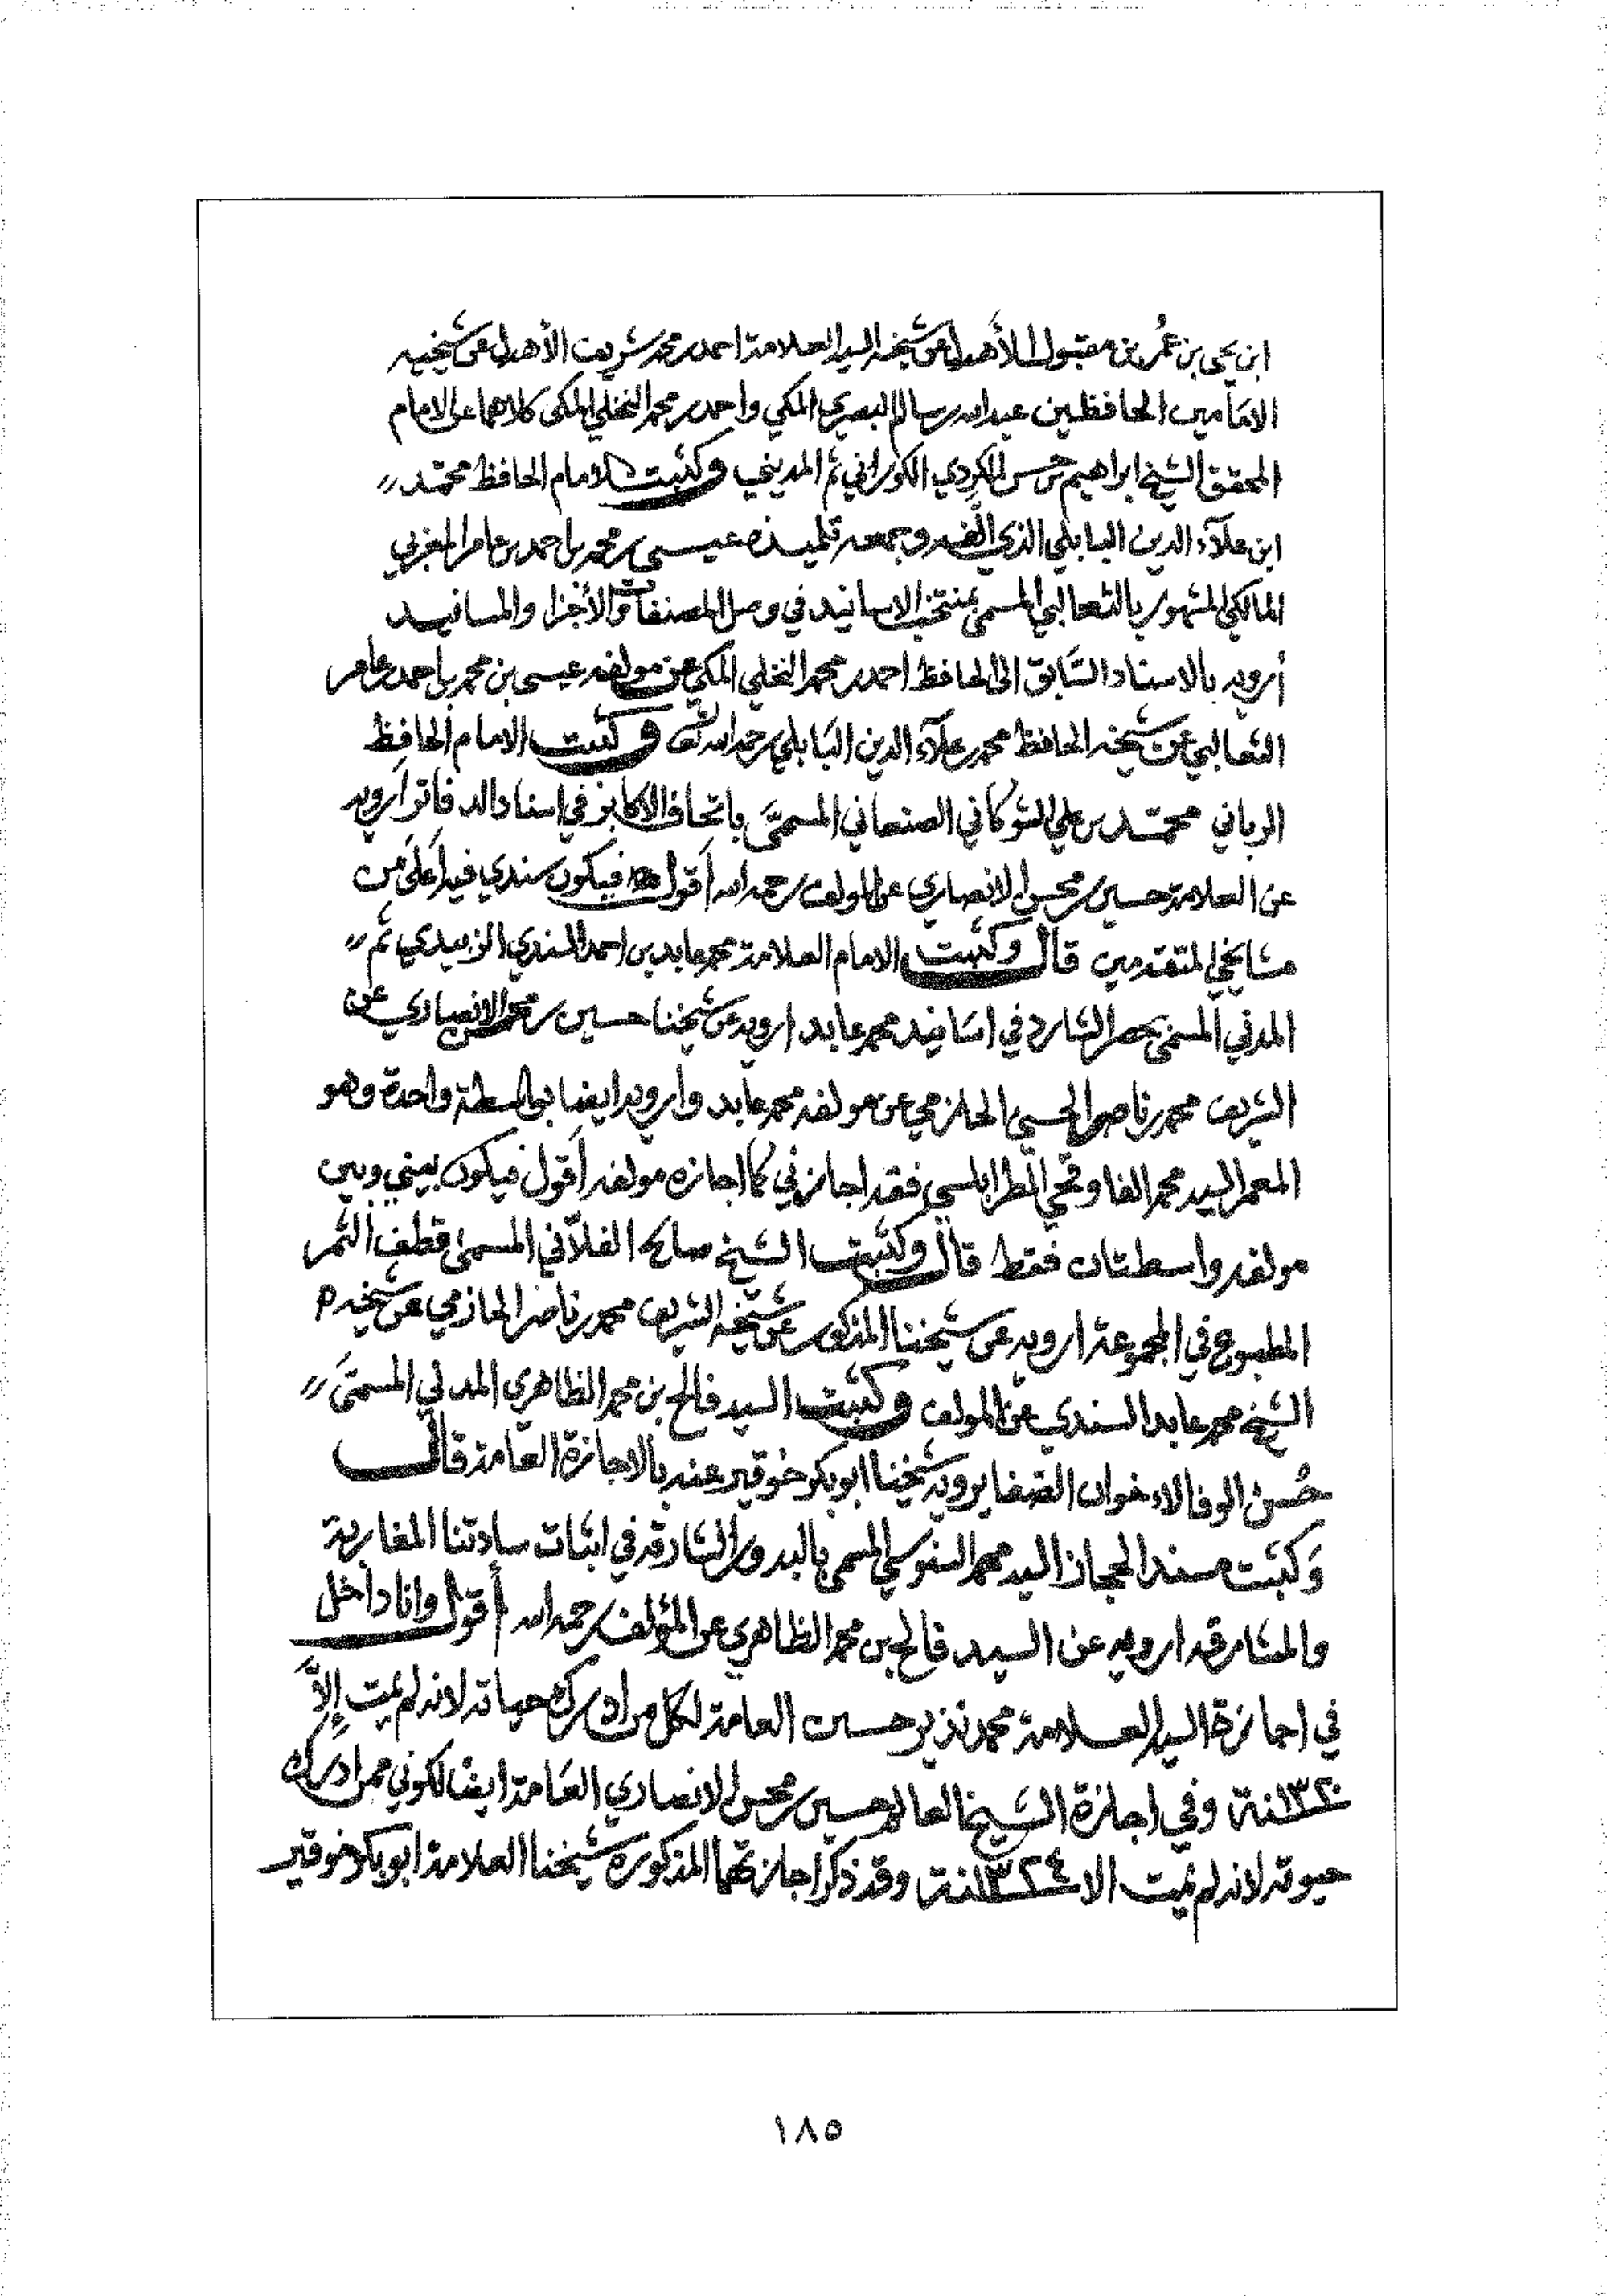 ابن يحيى بن عمر بن مقبول الأهدل عن شيخه السيد العلامة احمد بن محمد شريف الأهدل عن شيخيه
الامامين الحافظين عبد الله بن سالم البصري المكي واحمد بن محمد النخلي المكي كلاهما عن الامام
المحقق الشيخ ابراهيم بن حسن الكردي الكوراني ثم المديني وكثبت الامام الحافظ محمد
ابن علآء الدين البابلي الذي الفه وجمعه تلميذه عيسى بن محمد بن احمد بن عامر المغربي
المالكي المشهور بالثعالبي المسمى بمنتخب الاسانيد في وصل المصنفات والأجزا والمسانيد
أرويه بالاسناد السَّابق الى الحافظ احمد بن محمد النخلي المكي عن مولفه عيسى بن محمد بن احمد بن عامر
الثعالبي عن شيخه الحافظ محمد بن علآء الدين البَابلي رحمه الله تعالى وكثبت الامام الحافظ
الرباني محمد بن علي الشوكاني الصنعاني المسمَّى باتحاف الاكابر في اسناد الدفاتر أرويه
عن العلامة حسين بن محسن الانصاري عن المولف رحمه الله أقول فيكون سندي فيه أعلَى من
مشايخي المتقدمين قال وكثبت الامام العلامة محمد عابد بن احمد السندي الزبيدي ثم
المدني المسمى بحصر الشارد في اسَانيد محمد عابد ارويه عن شيخنا حسين بن محسن الانصاري عن
الشريف محمد بن ناصر الحسني الحازمي عن مولفه محمد عابد وأرويه ايضا بواسطة واحدة وهو
المعمر السيد محمد القاوقجي الطرابلسي فقد اجازني كما اجازه مولفه أقول فيكون بيني وبين
مولفه واسطتان فقط قال وكثبت الشيخ صالح الفلاّني المسمى قطف الثمر
المطبوع في المجموعة ارويه عن شيخنا المذكور عن شيخه الشريف محمد بن ناصر الحازمي عن شيخه
الشيخ محمد عابد السندي عن المولف وكثبت السيد فالح بن محمد الظاهري المدني المسمَّى
حُسن الوفا لاخوان الصفا يرويه شيخنا ابو بكر خوقير عنه بالاجازة العَامة قال
وَكثبَت مسند الحجاز السيد محمد السنوسي المسمى بالبدور الشارقه في اثبات سادتنا المغاربة
والمشارقه ارويه عن السيد فالح بن محمد الظاهري عن المؤلف رحمه الله أقول وانا داخل
في اجازة السيد العلامة محمد نذير حسين العامة لكل من ادرك حياته لانه لم يمت إلاَّ
١٣٢٠سنة وفي اجازة الشيخ العالم حسين بن محسن الانصاري العَامة ايضًا لكوني ممن ادرك
حيوته لانه لم يمت الا ١٣٢٤سنة وقد ذكر اجازتهما المذكورة شيخنا العلامة ابو بكر خوقير
١٨٥